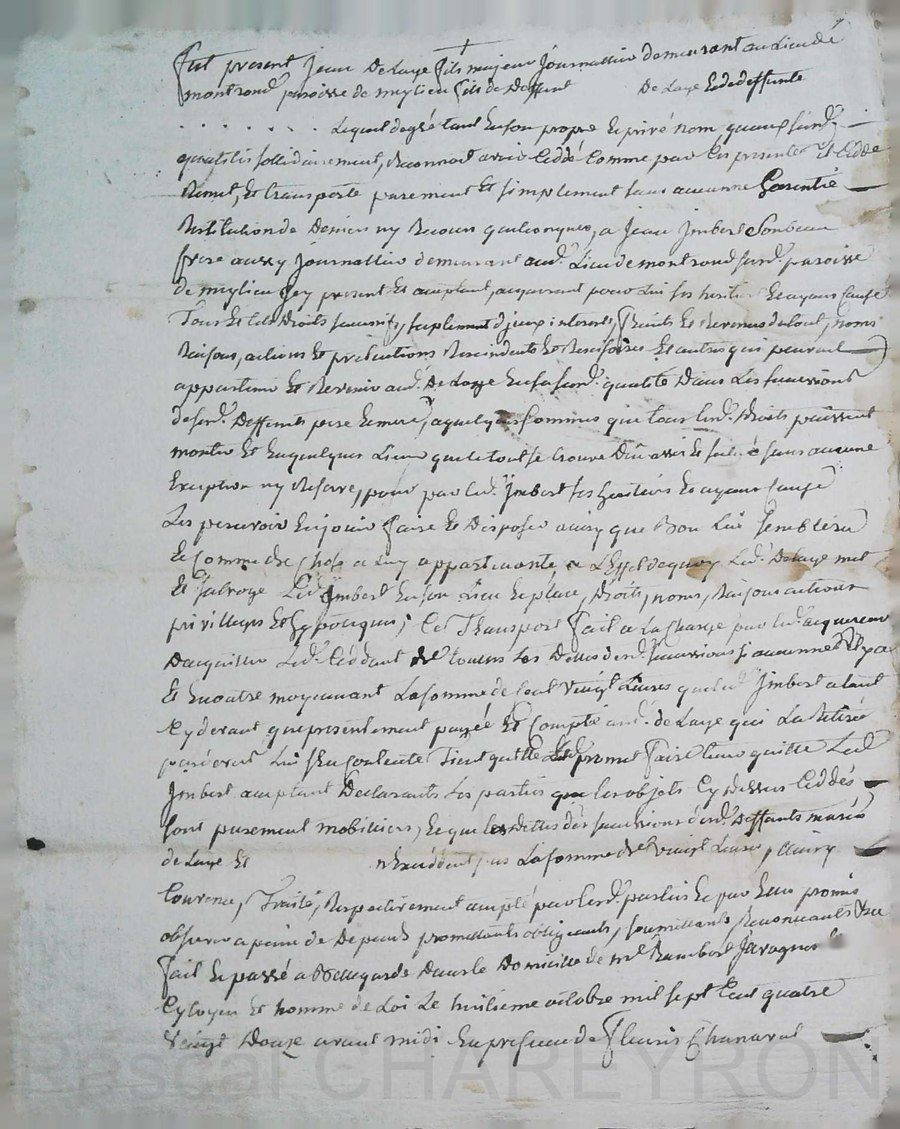 Fut present Jean Delaye fils majeur Journallier demeurant au Lieu de
montrond paroisse de meylieu fils de Deffunt Delaye Et de deffunte
. . . . . . . Lequel de gré tant En son propre Et privé nom, quaux susd.
qualités sollidairement, Reconnoit avoir Ceddé Comme par Ces presentes Il Cedde
Remet, Et transporte purement Et simplement sans aucunne Garentie
Restitution de Deniers ny Recours quelconques, a Jean Imbert Son beau
frere aussy Journallier demeurant aud. Lieu de montrond susd. paroisse
de meylieu Icy present Et acceptant, acquerant pour Lui ses heritiers Et ayans Cause
Tous Et tels Droits successifs, suplement d'jceux interests, fruits Et Revenus du tout, noms
Raisons, actions Et pretentions Rescindents Et Rescisoires Et autres qui peuvent
appartenir Et Revenir aud. Delaye En sa susd. qualité Dans Les successions
desd. Deffunts pere Et mere, a quelques sommes que tous lesd. Droits puissent
monter Et En quelques Lieux que le tout se trouve Dû assis Et situé sans aucune
Exception ny Reserve, pour par led. Imbert ses heritiers Et ayans Cause
Les percevoir En jouir faire Et Disposer ainsy que Bon Lui semblera
Et Comme de Chose a Luy appartenante, a L'Effet de quoy Led. Delaye met
Et subroge Led. Imbert En son Lieu Et place, Droits, noms, Raisons actions
privilleges Et hypoteques; Cet Transport fait a La Charge par led. acquereur
Dacquitter Led. Ceddant de touttes Les Dettes desd. successions si aucunnes Il y a
Et En outre moyennant La somme de Cent Vingt Livres que led. Imbert a tout
Cy devant que presentement payée Et Compté aud. Delaye qui La Retirée
pardevers Lui s'En Contente Tient quitte Et promet faire tenir quitte Led.
Imbert acceptant Declarants Les parties que les objets Cy dessus Ceddés
sont purement mobiliers, Et que les dettes des successions desd. Deffunts mariés
de Laye Et n'Exceddent pas La somme de Vingt Livres, ainsy
Convenu, Traité, Respectivement accepté par lesd. parties Et par Elles promis
observer a peine de Depends promettants obligeants, soumettants Renonceants &ce
fait Et passé a Bellegarde Dans le Domicille de me. Rambert Javagnat
Cytoyen Et homme de Loi Le huitieme octobre mil sept Cent quatre
Vingt Douze avant midi En presence de fleuris Chanavat
Pascal CHAREYRON